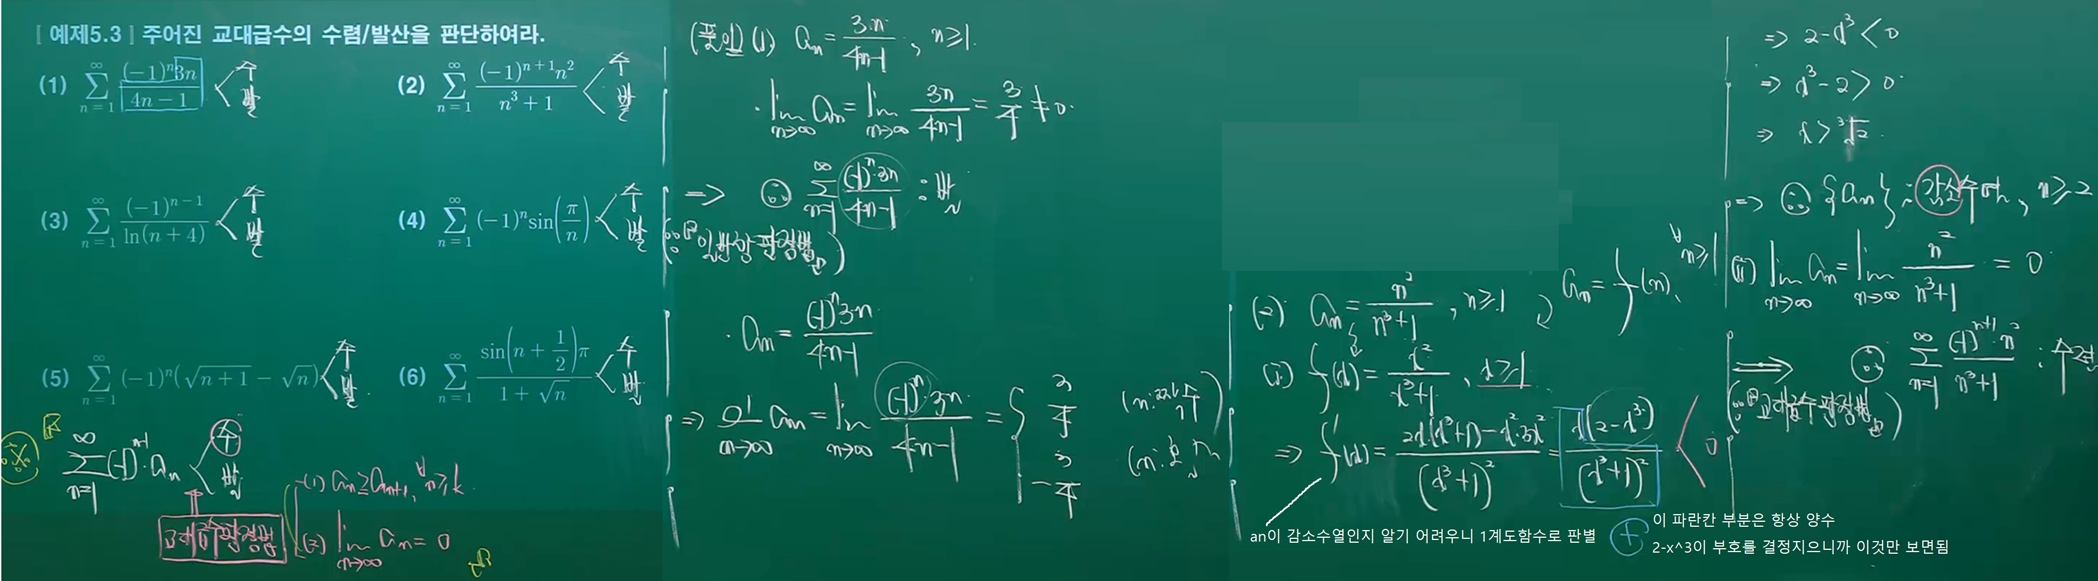 [ 예제5.3 ] 주어진 교대급수의 수렴/발산을 판단하여라.
(1) ∑_{n=1}^{∞} (-1)^n 3n / (4n-1) < 수 발
(2) ∑_{n=1}^{∞} (-1)^{n+1} n^2 / (n^3+1) < 수 발
(3) ∑_{n=1}^{∞} (-1)^{n-1} / ln(n+4) < 수 발
(4) ∑_{n=1}^{∞} (-1)^n sin(π/n) < 수 발
(5) ∑_{n=1}^{∞} (-1)^n (√(n+1) - √n) < 수 발
(6) ∑_{n=1}^{∞} sin(n + 1/2)π / (1+√n) < 수 발
∑_{n=1}^{∞} (-1)^{n-1} · a_n < 수 발
교대급수판정법
(1) a_n ≥ a_{n+1}, ∀n ≥ k
(2) lim_{n→∞} a_n = 0
(풀이) (1) a_n = 3n / (4n-1), n ≥ 1.
· lim_{n→∞} a_n = lim_{n→∞} 3n / (4n-1) = 3/4 ≠ 0.
⇒ ∴ ∑_{n=1}^{∞} (-1)^n · 3n / (4n-1) : 발
(∵ 일반항판정법)
· a_n = (-1)^n 3n / (4n-1)
⇒ lim_{n→∞} a_n = lim_{n→∞} (-1)^n · 3n / (4n-1) = { 3/4
-3/4
(2) a_n = n^2 / (n^3+1), n ≥ 1
a_n = f(n), ∀n ≥ 1
(i) f(x) = x^2 / (x^3+1), x ≥ 1
⇒ f'(x) = 2x(x^3+1) - x^2 · 3x^2 / (x^3+1)^2 = x(2-x^3) / (x^3+1)^2 < 0
an이 감소수열인지 알기 어려우니 1계도함수로 판별
+ 이 파란칸 부분은 항상 양수
2-x^3이 부호를 결정지으니까 이것만 보면됨
⇒ 2-x^3 < 0
⇒ x^3-2 > 0
⇒ x > ∛2.
⇒ ∴ {a_n} : 감소수열, n ≥ 2
(ii) lim_{n→∞} a_n = lim_{n→∞} n^2 / (n^3+1) = 0
⇒ ∴ ∑_{n=1}^{∞} (-1)^{n+1} · n^2 / (n^3+1) : 수렴
(∵ 교대급수판정법)